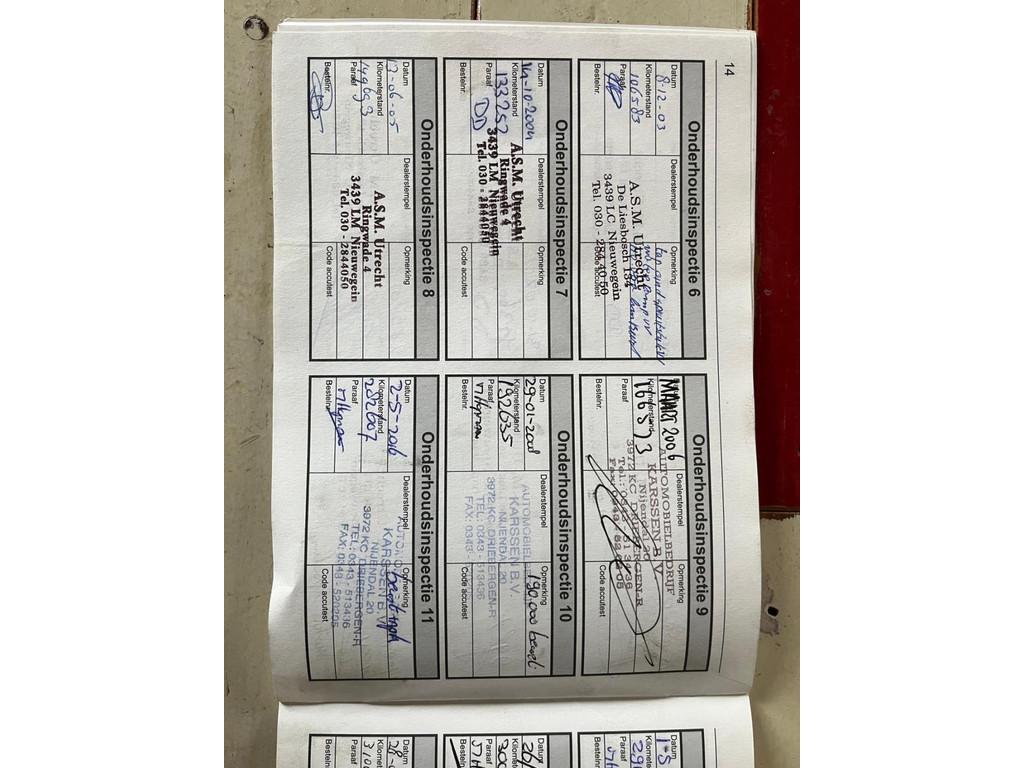 14
Onderhoudsinspectie 6
Datum
8-12-03
Kilometerstand
106583
Paraaf
Bestelnr.
Dealerstempel
A.S.M. Utrecht
De Liesbosch 134
3439 LC Nieuwegein
Tel. 030 - 2844050
Opmerking
Code accutest
Onderhoudsinspectie 7
Datum
14-10-2004
Kilometerstand
133252
Paraaf
DD
Bestelnr.
Dealerstempel
A.S.M. Utrecht
Ringwade 4
3439 LM Nieuwegein
Tel. 030 - 2844050
Opmerking
Code accutest
Onderhoudsinspectie 8
Datum
17-06-05
Kilometerstand
149693
Paraaf
Bestelnr.
Dealerstempel
A.S.M. Utrecht
Ringwade 4
3439 LM Nieuwegein
Tel. 030 - 2844050
Opmerking
Code accutest
Onderhoudsinspectie 9
Datum
2006
Kilometerstand
166873
Paraaf
Bestelnr.
Dealerstempel
AUTOMOBIELBEDRIJF
KARSSEN B.V.
Nijendal 20
3972 KC DRIEBERGEN-R
Tel.: 0343 - 513436
Fax: 0343 - 520205
Opmerking
Code accutest
Onderhoudsinspectie 10
Datum
29-01-2008
Kilometerstand
192035
Paraaf
Bestelnr.
Dealerstempel
AUTOMOBIEL
KARSSEN B.V.
NIJENDAL 20
3972 KC DRIEBERGEN-R
TEL.: 0343 - 513436
FAX: 0343 -
Opmerking
190.000 beurt
Code accutest
Onderhoudsinspectie 11
Datum
2-5-2016
Kilometerstand
282607
Paraaf
Bestelnr.
Dealerstempel
KARSSEN B.V.
NIJENDAL 20
3972 KC DRIEBERGEN-R
TEL.: 0343 - 513436
FAX: 0343 - 520205
Opmerking
Code accutest
Datum
Paraaf
Bestelnr.
Datum
Paraaf
Bestelnr.
Datum
Paraaf
Bestelnr.